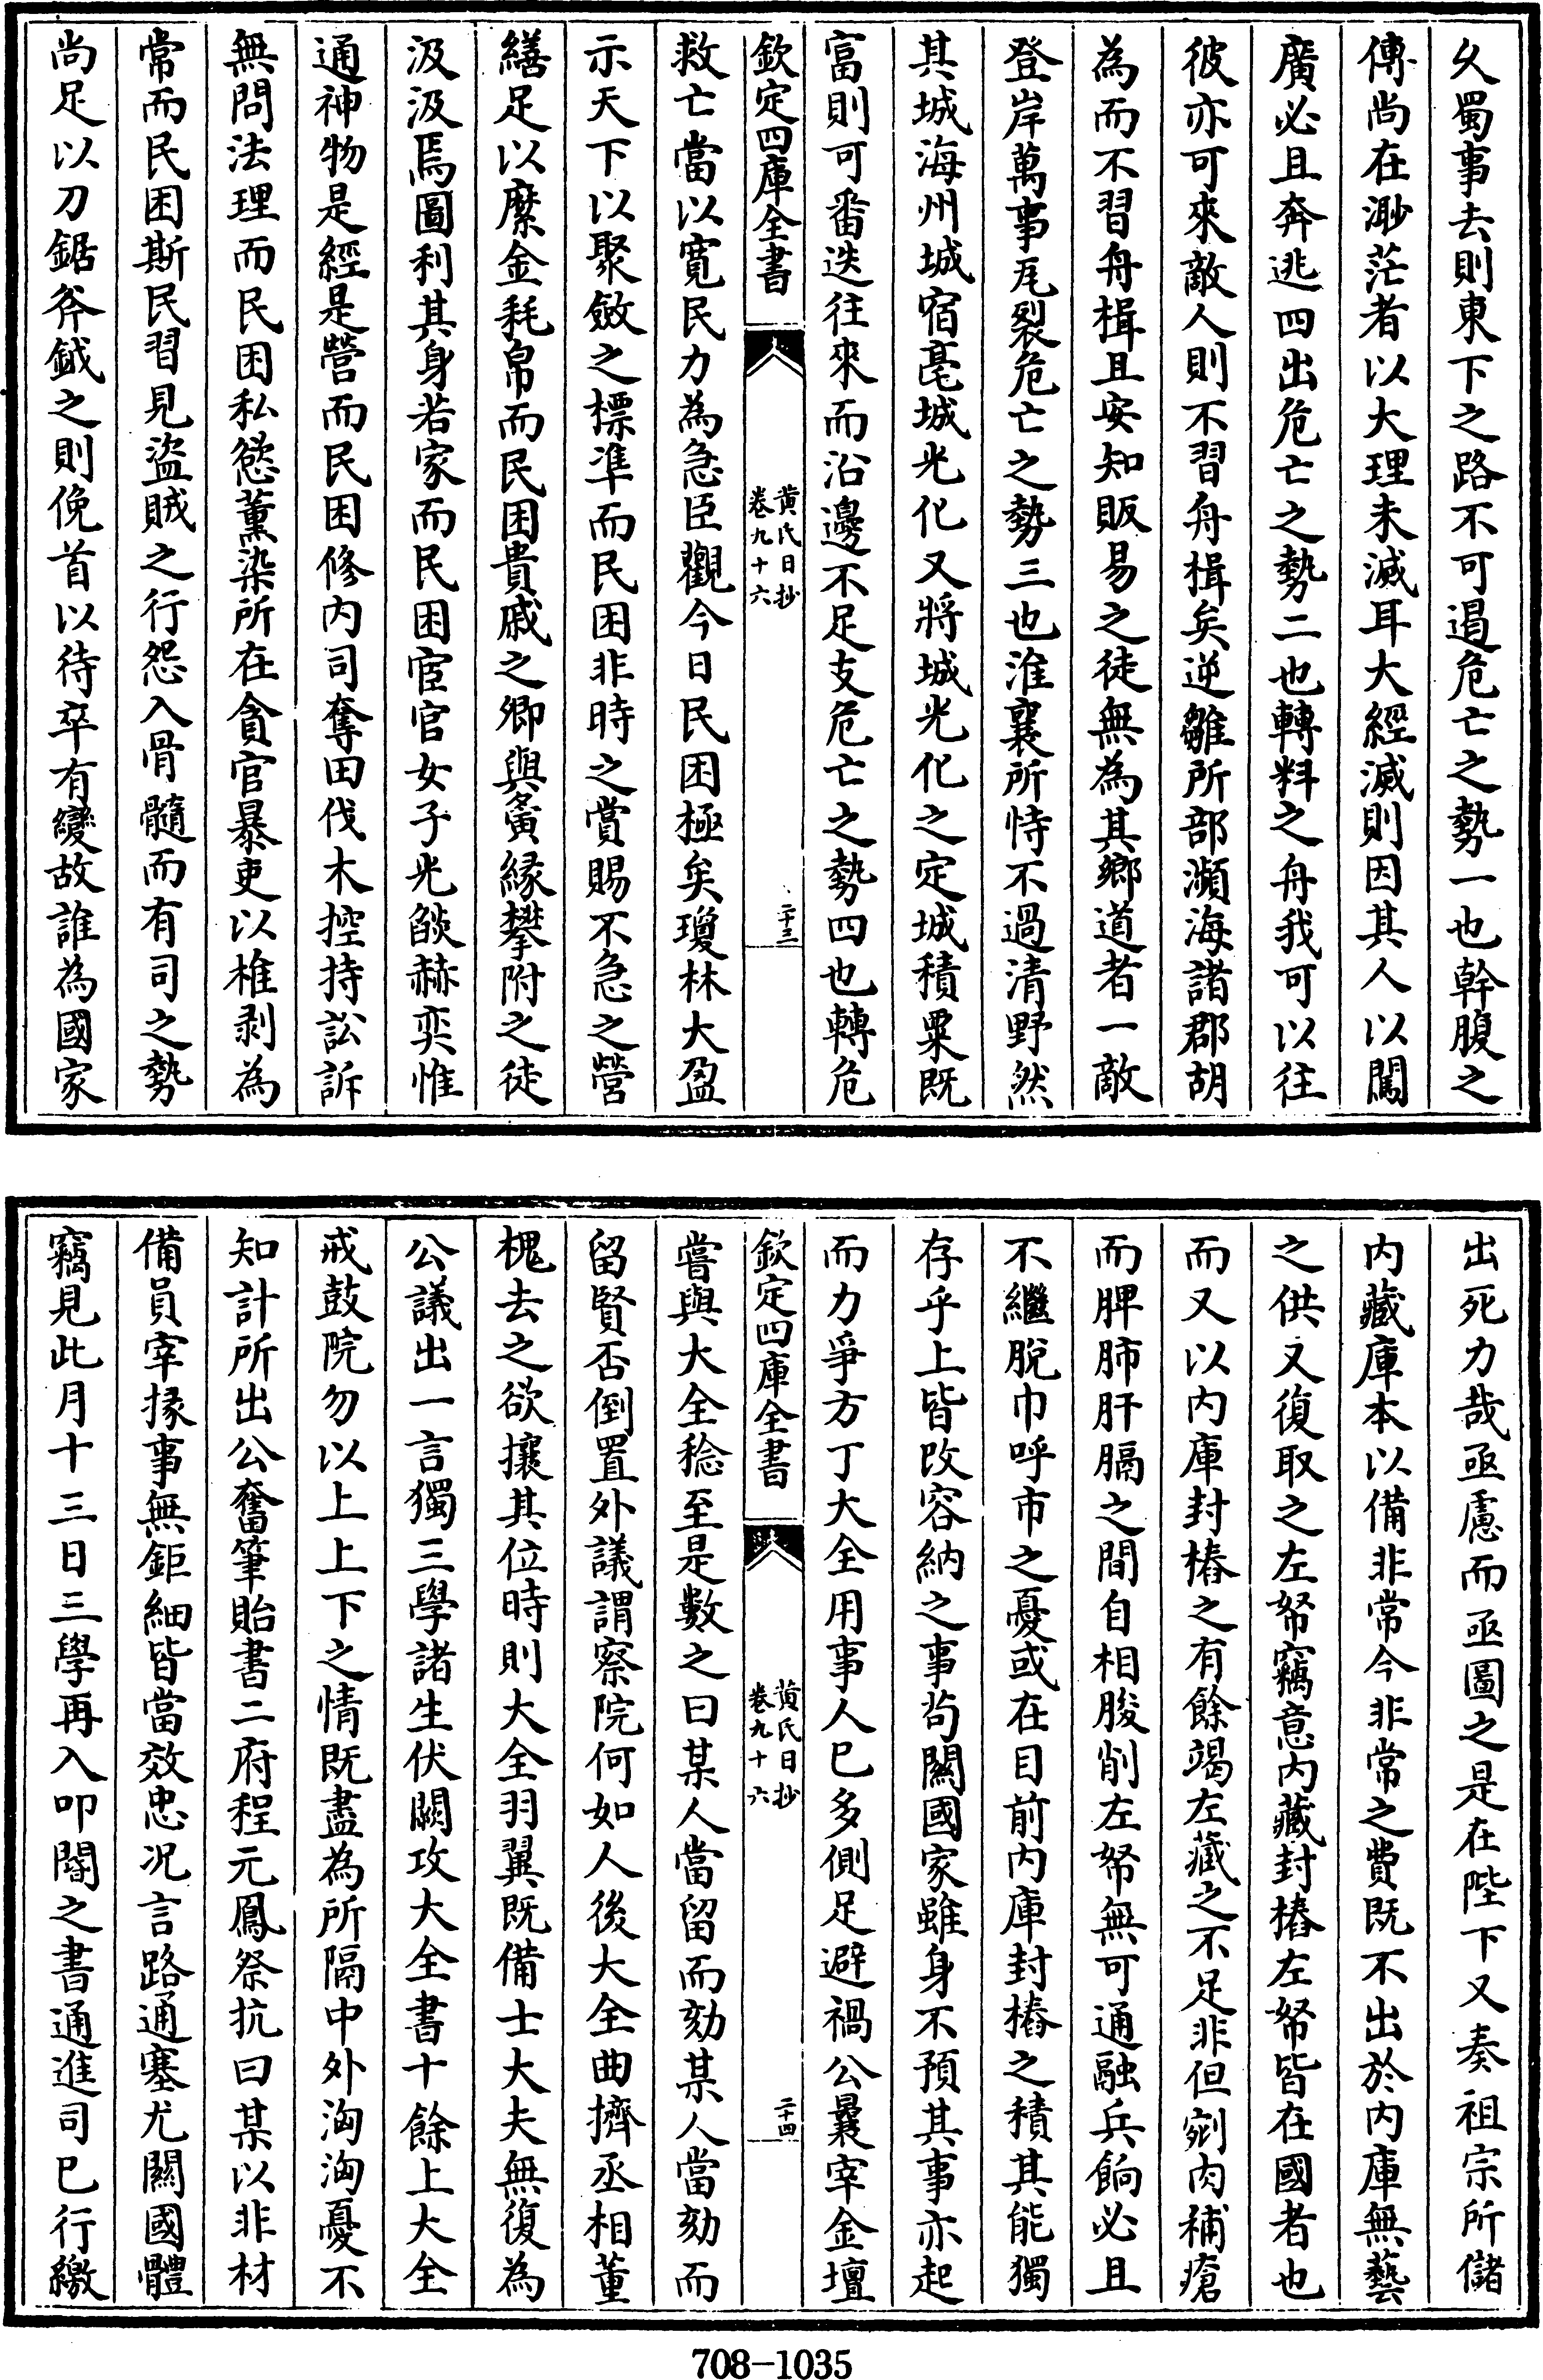 久蜀事去則東下之路不可遏危亡之勢一也幹腹之
傳尚在渺茫者以大理未滅耳大經滅則因其人以闖
廣必且奔逃四出危亡之勢二也轉料之舟我可以往
彼亦可來敵人則不習舟楫矣逆雛所部瀕海諸郡胡
為而不習舟楫且安知販易之徒無為其鄉道者一敵
登岸萬事瓦裂危亡之勢三也淮襄所恃不過清野然
其城海州城宿亳城光化又將城光化之定城積粟既
富則可番迭往來而沿邊不足支危亡之勢四也轉危
欽定四庫全書
黄氏日抄
卷九十六
二十三
救亡當以寛民力為急臣觀今日民困極矣瓊林大盈
示天下以聚斂之標凖而民困非時之賞賜不急之營
繕足以糜金耗帛而民困貴戚之卿與夤縁攀附之徒
汲汲焉圖利其身若家而民困宦官女子光燄赫奕惟
通神物是經是營而民困修内司奪田伐木控持訟訴
無問法理而民困私慾薰染所在貪官暴吏以椎剥為
常而民困斯民習見盜賊之行怨入骨髓而有司之勢
尚足以刀鋸斧鉞之則俛首以待卒有變故誰為國家
出死力哉亟慮而亟圖之是在陛下又奏祖宗所儲
内藏庫本以備非常今非常之費既不出於内庫無藝
之供又復取之左帑竊意内藏封樁左帑皆在國者也
而又以内庫封樁之有餘竭左藏之不足非但剜肉補瘡
而脾肺肝膈之間自相朘削左帑無可通融兵餉必且
不繼脫巾呼市之憂或在目前内庫封樁之積其能獨
存乎上皆改容納之事茍闗國家雖身不預其事亦起
而力爭方丁大全用事人已多側足避禍公曩宰金壇
欽定四庫全書
黄氏日抄
卷九十六
二十四
嘗與大全稔至是數之曰某人當留而劾某人當劾而
留賢否倒置外議謂察院何如人後大全曲擠丞相董
槐去之欲攘其位時則大全羽翼既備士大夫無復為
公議出一言獨三學諸生伏闕攻大全書十餘上大全
戒鼓院勿以上上下之情既盡為所隔中外洶洶憂不
知計所出公奮筆貽書二府程元鳳祭抗曰某以非材
備員宰掾事無鉅細皆當效忠况言路通塞尤闗國體
竊見此月十三日三學再入叩閽之書通進司已行繳
708-1035